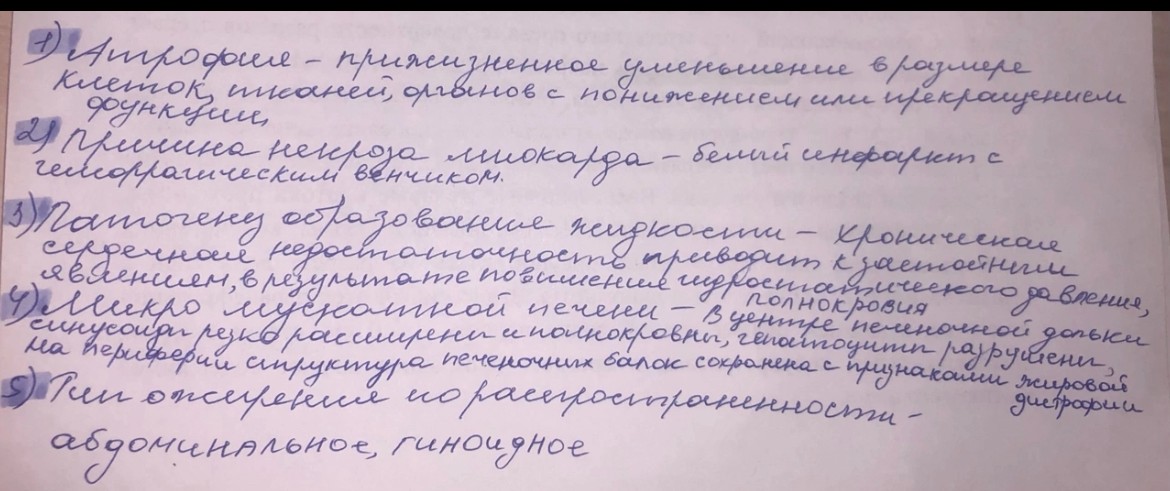 1) Атрофия – прижизненное уменьшение в размере
клеток, тканей, органов с понижением или прекращением
функции,
2) Причина некроза миокарда – белый инфаркт с
геморрагическим венчиком.
3) Патогенез образования жидкости – хроническая
сердечная недостаточность приводит к застойным
явлениям, в результате повышения гидростатического давления,
4) Микро мускатной печени – полнокровия
в центре печеночной дольки
синусоиды резко расширены и полнокровны, гепатоциты разрушены,
на периферии структура печеночных балок сохранена с признаками жировой
дистрофии
5) Тип ожирения по распространенности –
абдоминальное, гиноидное